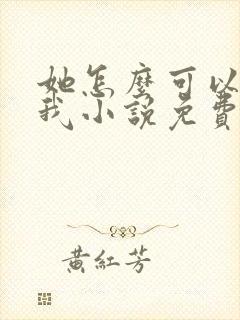 她怎麼可以
我小說免費
黃紅芳